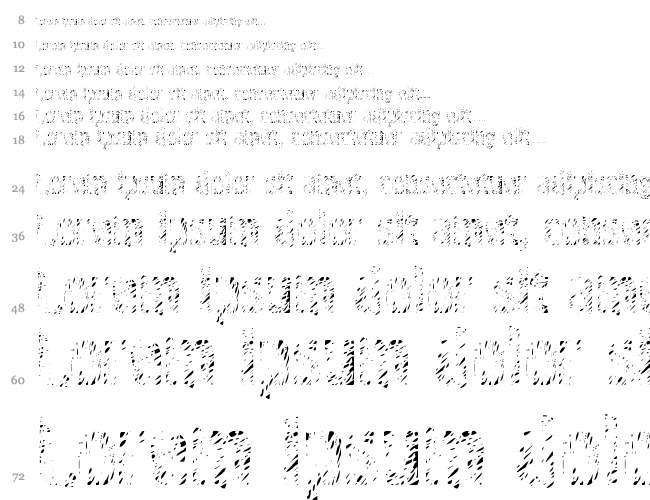 8 Lorem ipsum dolor sit amet, consectetuer adipiscing elit...
10 Lorem ipsum dolor sit amet, consectetuer adipiscing elit...
12 Lorem ipsum dolor sit amet, consectetuer adipiscing elit...
14 Lorem ipsum dolor sit amet, consectetuer adipiscing elit...
16 Lorem ipsum dolor sit amet, consectetuer adipiscing elit...
18 Lorem ipsum dolor sit amet, consectetuer adipiscing elit...
24 Lorem ipsum dolor sit amet, consectetuer adipiscing
36 Lorem ipsum dolor sit amet, consec
48 Lorem ipsum dolor sit ame
60 Lorem ipsum dolor si
72 Lorem ipsum dolo